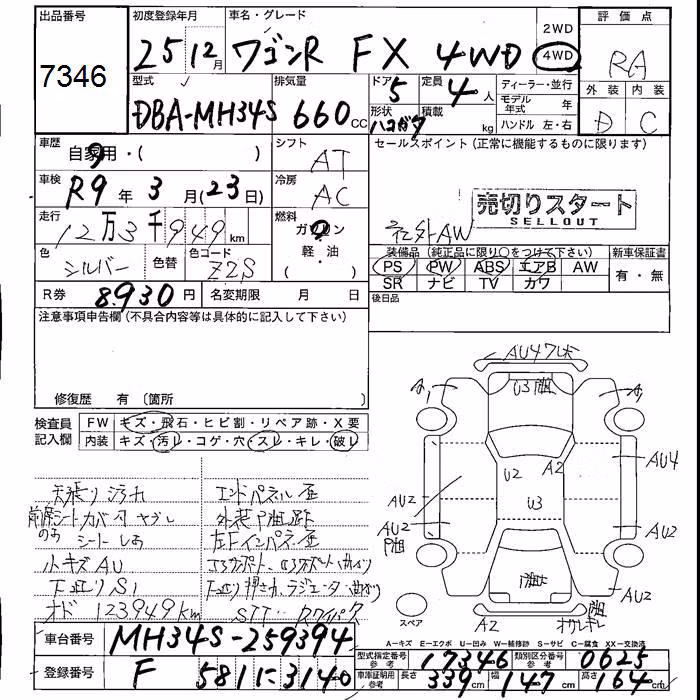 出品番号
7346
初度登録年月
25 12月
車名・グレード
ワゴンR FX 4WD
2WD
4WD
評価点
RA
外装 内装
D C
型式
DBA-MH34S
排気量
660 CC
ドア 5
定員 4人
形状
積載 kg
ディーラー・並行
モデル年式 年
ハンドル 左・右
車歴
自家用・( )
シフト
AT
車検
R9年 3月(23日)
冷房
AC
走行
12万3千949km
燃料
ガソリン
軽・油
( )
色
シルバー
色替
色コード
Z2S
R券 8930円
名変期限 月 日
セールスポイント(正常に機能するものに限ります)
売切りスタート
SELLOUT
社外AW
装備品(純正品に限り○をつけて下さい)
PS PW ABS エアB AW
SR ナビ TV カワ
新車保証書
有・無
後日品
注意事項申告欄(不具合内容等は具体的に記入して下さい)
修復歴 有 〔箇所
検査員記入欄
FW キズ・飛石・ヒビ割・リペア跡・X要
内装 キズ・汚レ・コゲ・穴・スレ・キレ・破レ
天張り汚れ
エンドパネル歪
シートしわ
左Fインパネ歪
小キズAU
下廻りS1
オド 123949km
AU4
U3
A1
A1
U2
A2
U3
AU4
AU2
AU2
AU2
A2
スペア
A-キズ E-エクボ U-凹み W-補修跡 S-サビ C-腐食 XX-交換済
車台番号
MH34S-259394
登録番号
F 581 に 3140
型式指定番号 参考 17346
類別区分番号 参考 0625
車庫証明用参考 長さ 339cm 幅 147cm 高さ 164cm